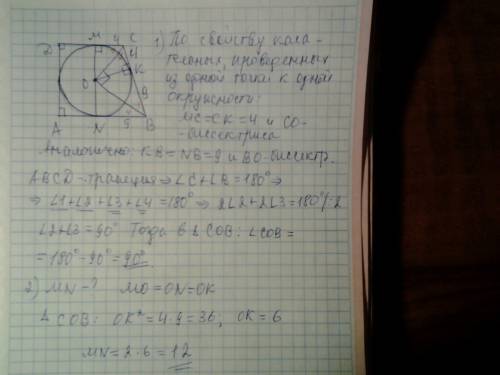 D M 4 C
4
K
O
9
A N 9 B
1) По свойству каса-
тельных, проведенных
из одной точки к одной
окружности:
MC=CK=4 и CO-
-биссектриса
Аналогично: KB=NB=9 и BO-биссектр.
ABCD-трапеция ⇒ ∠C+∠B=180° ⇒
⇒ ∠1+∠2+∠3+∠4=180° ⇒ 2∠2+2∠3=180° /:2
∠2+∠3=90° Тогда в △COB: ∠COB=
=180°-90°=90°
2) MN-? MO=ON=OK
△COB: OK²=4·9=36, OK=6
MN=2·6=12